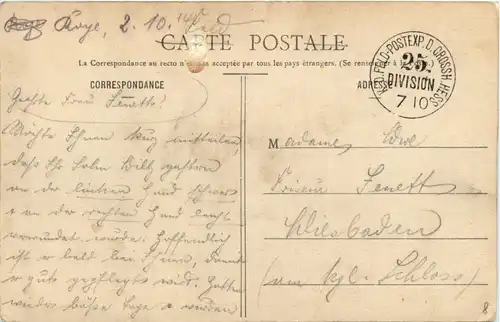 Roye, 2. 10. 14
CARTE POSTALE
La Correspondance au recto n'est pas acceptée par tous les pays étrangers. (Se renseigner à la
CORRESPONDANCE
ADRESSE
K.D. FELD-POSTEXP. D. GROSSH. HESS.
25.
DIVISION
7 10
Geehrte Frau Fenette!
Möchte Ihnen kurz mitteilen,
daß Ihr Sohn Willy gestern
an der linken Hand schwer
u an der rechten Hand leicht
verwundet wurde. Hoffentlich
ist er bald bei Ihnen, damit
er gut gepflegt wird. Hatten
wieder böse Tage u wurden
Madame
Friseur Fenett
Wiesbaden
(am kgl. Schloss)
8